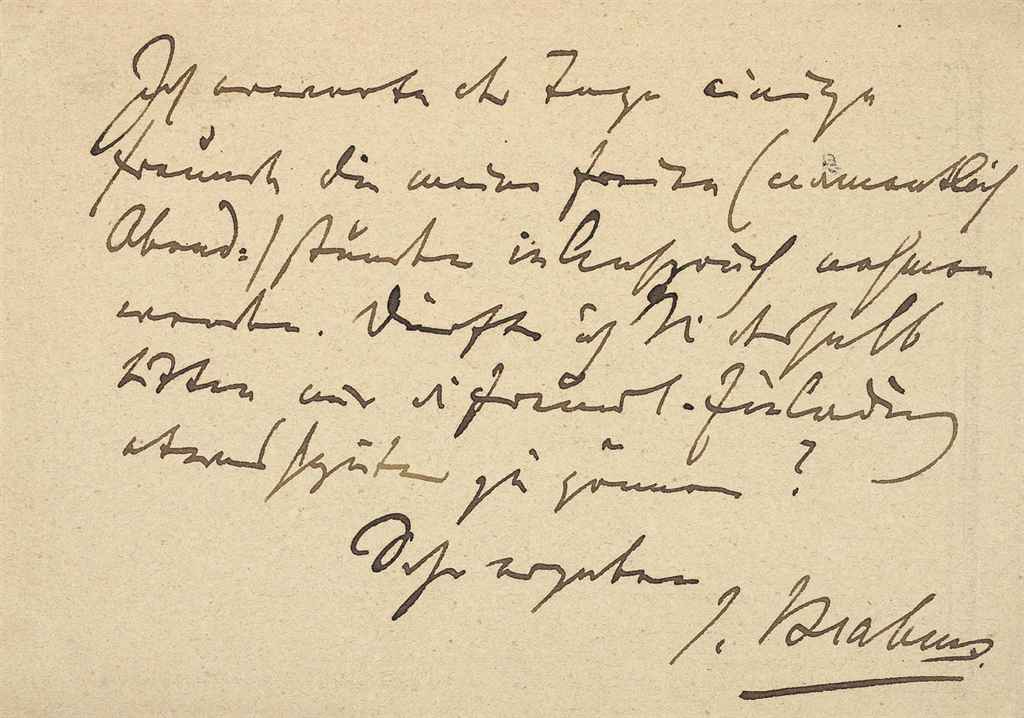 Ich erwarte der Tage einige
Freunde die meine freien (namentlich
Abend=) stunden in Anspruch nehmen
werden. Dürfte ich Sie deshalb
bitten mir die freundl. Einladung
etwas später zu gönnen?
Sehr ergeben
J. Brahms.